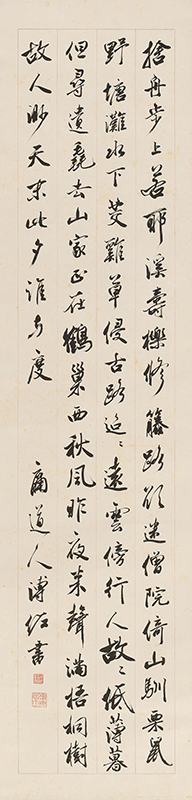 捨舟步上若耶溪壽櫟脩藤路欲迷僧院倚山馴栗鼠
野塘灘水下茭雞草侵古路迢〻遠雲傍行人故〻低薄暮
但尋遺堯去山家正在鶴巢西秋風昨夜來聲滿梧桐樹
故人眇天末此夕誰与度
齊道人溥伒書